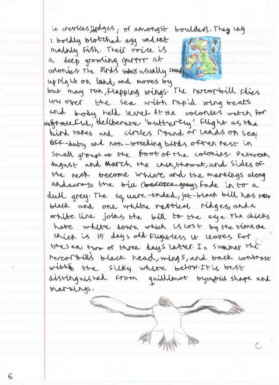 in crevices, ledges, or amongst boulders. They lay
1 boldly blotched egg and eat
mainly fish. Their voice is
a deep growling 'goarrr' at
colonies. The birds usually stand
upright on land, and moves by
but may run, flapping wings. The razorbill flies
low over the sea with rapid wing beats
and body held level. At the colonies watch for
deliberate 'butterfly' flight as the
bird takes and circles round or lands on sea.
and non-breeding birds often rest in
small groups at the foot of the colonies. Between
August and March, the chin, throat, and sides of
the neck become white and the markings along
and across the bill fade in to a
dull grey. The square-ended, jet black bill has
black and one white vertical ridges, and a
white line joins the bill to the eye. The chicks
have white down which is lost by the time the
chick is 15 days old. Flightless it leaves for
the sea two or three days later. In summer the
razorbills black head, wings, and back contrast
with the silky white below. It is best
distinguished from guillemot by shape and
markings.
6